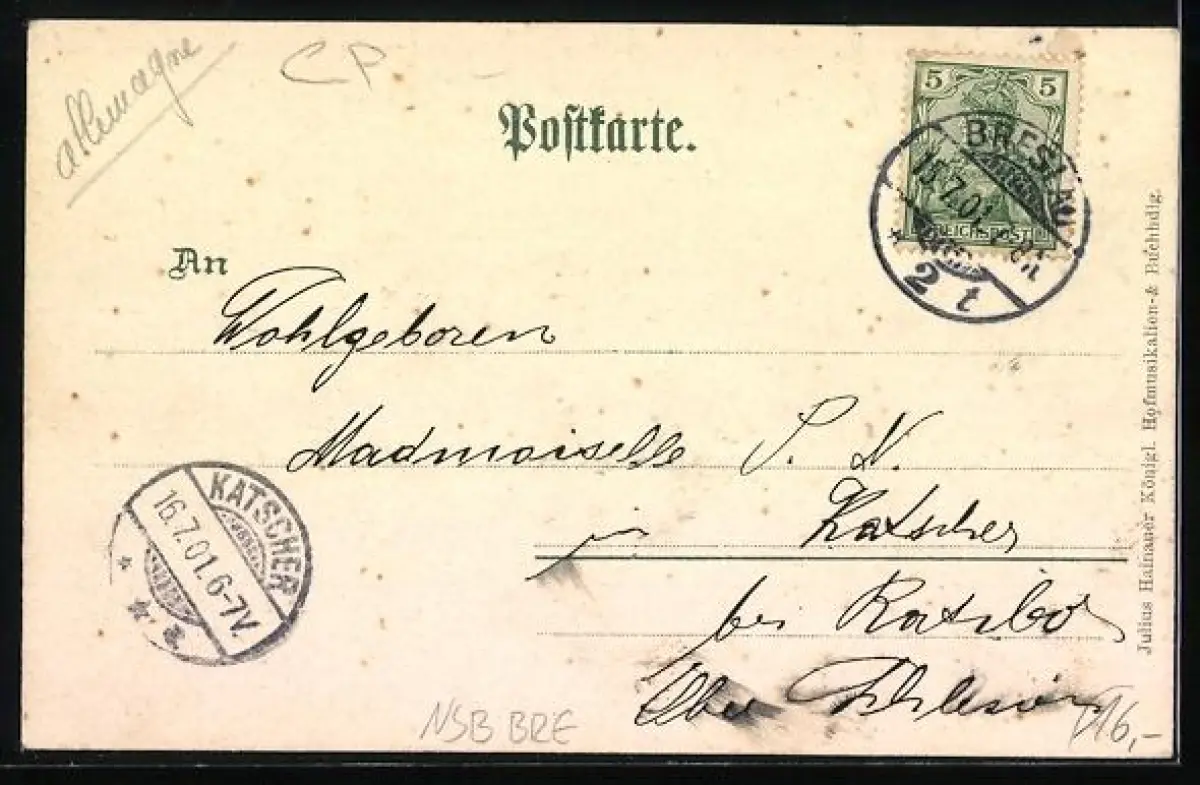 allemagne
CP
Postkarte.
5 5
REICHSPOST
BRESLAU
15.7.01
2 t
An
Wohlgeboren
Madmoiselle S. N.
Katscher
bei Ratibor
Ober Schlesien
KATSCHER
16.7.01.6-7V.
NSB BRE
16,-
Julius Hainauer Königl. Hofmusikalien- & Buchhdlg.